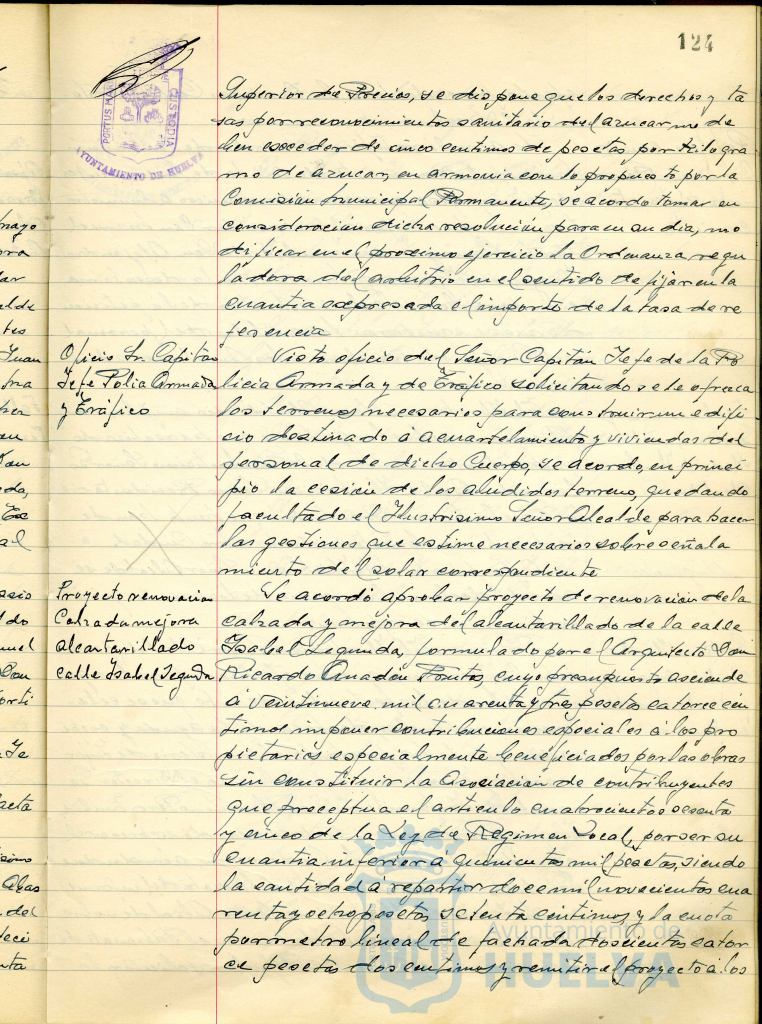 124
PORTUS MARIS
CUSTODIA
AYUNTAMIENTO DE HUELVA
Superior de Precios, se dispone que los derechos y ta
sas por reconocimientos sanitario del azucar, no de
ben exceder de cinco centimos de pesetas por Kilogra
mo de azucar, en armonia con lo propuesto por la
Comisión Municipal Permanente, se acordo tomar en
consideración dicha resolución para en su dia, mo
dificar en el proximo ejercicio la Ordenanza regu
ladora del arbitrio en el sentido de fijar en la
cuantia expresada el importe de la tasa de re
ferencia
Oficio Sr. Capitan
Jefe Polia Armada
y Tráfico
Visto oficio del Señor Capitán Jefe de la Po
licia Armada y de Tráfico solicitando se le ofrezca
los terrenos necesarios para construir un edifi
cio destinado á acuartelamiento y viviendas del
personal de dicho Cuerpo, se acordo, en princi
pio la cesión de los aludidos terreno, quedando
facultado el Ilustrisimo Señor Alcalde para hacer
las gestiones que estime necesarios sobre señala
miento del solar correspondiente
Proyecto renovacion
Calzada mejora
alcantarillado
calle Isabel Segunda
Se acordó aprobar proyecto de renovación de la
calzada y mejora del alcantarillado de la calle
Isabel Segunda, formulado por el Arquitecto Don
Ricardo Anadón Frutos, cuyo presupuesto asciende
á veintinueve mil cuarenta y tres pesetas catorce cén
timos imponer contribuciones especiales á los pro
pietarios especialmente beneficiados por las obras
sin constituir la Asociación de contribuyentes
que preceptua el articulo cuatrocientos sesenta
y cinco de la Ley de Regimen Local, por ser su
cuantia inferior á quinientas mil pesetas, siendo
la cantidad á repartir doce mil novecientos cua
renta y ocho pesetas setenta céntimos y la cuota
por metro lineal de fachada doscientas cator
ce pesetas dos centimos y remitir el proyecto á los
Ayuntamiento de
HUELVA